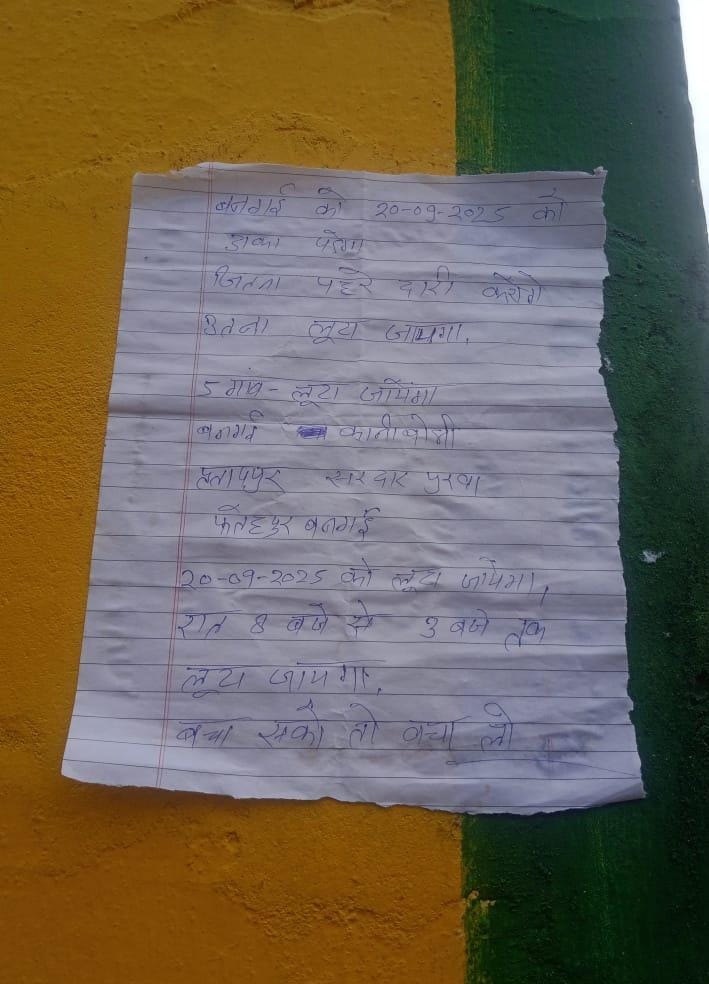 बनगई को 20-09-2025 को
डाका पडेगा
जितना पहरे दारी करोगे
उतना लूटा जायगा.
5 गांव - लूटा जायेंगा
बनगई कानीबोझी
प्रतापपुर सरदार पुरवा
फतेहपुर बनगई
20-09-2025 को लूटा जायेगा,
रात 8 बजे से 3 बजे तक
लूटा जायगा,
बचा सको तो बचा लो